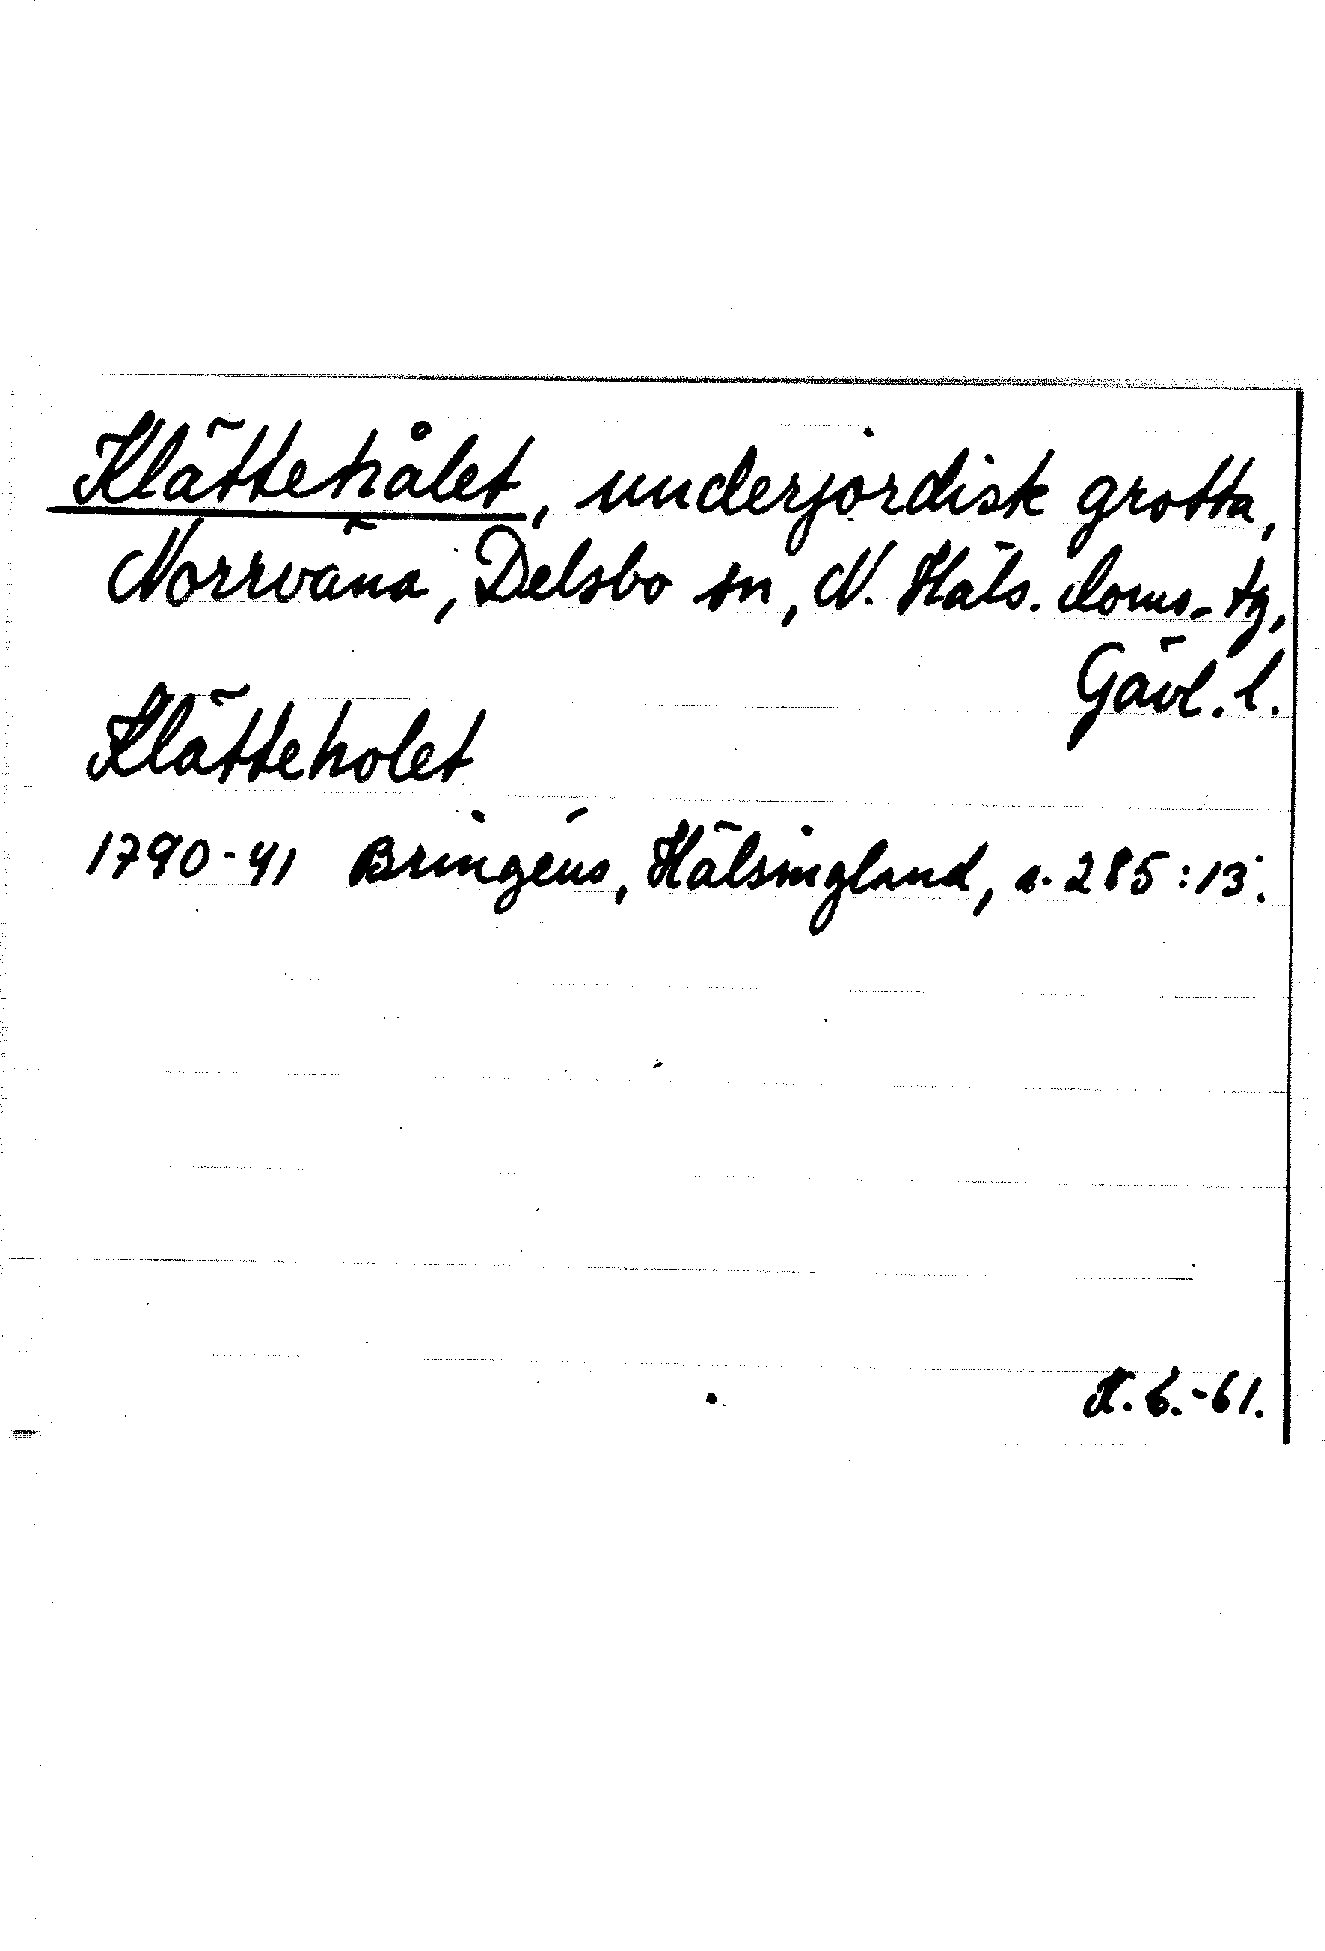 Klättehålet, underjordisk grotta,
Norrväna, Delsbo sn, N. Häls. doms. tg,
Gävl. l.
Klätteholet
1790-91 Bringéus, Hälsingland, s. 285:13.
A. 6.-61.